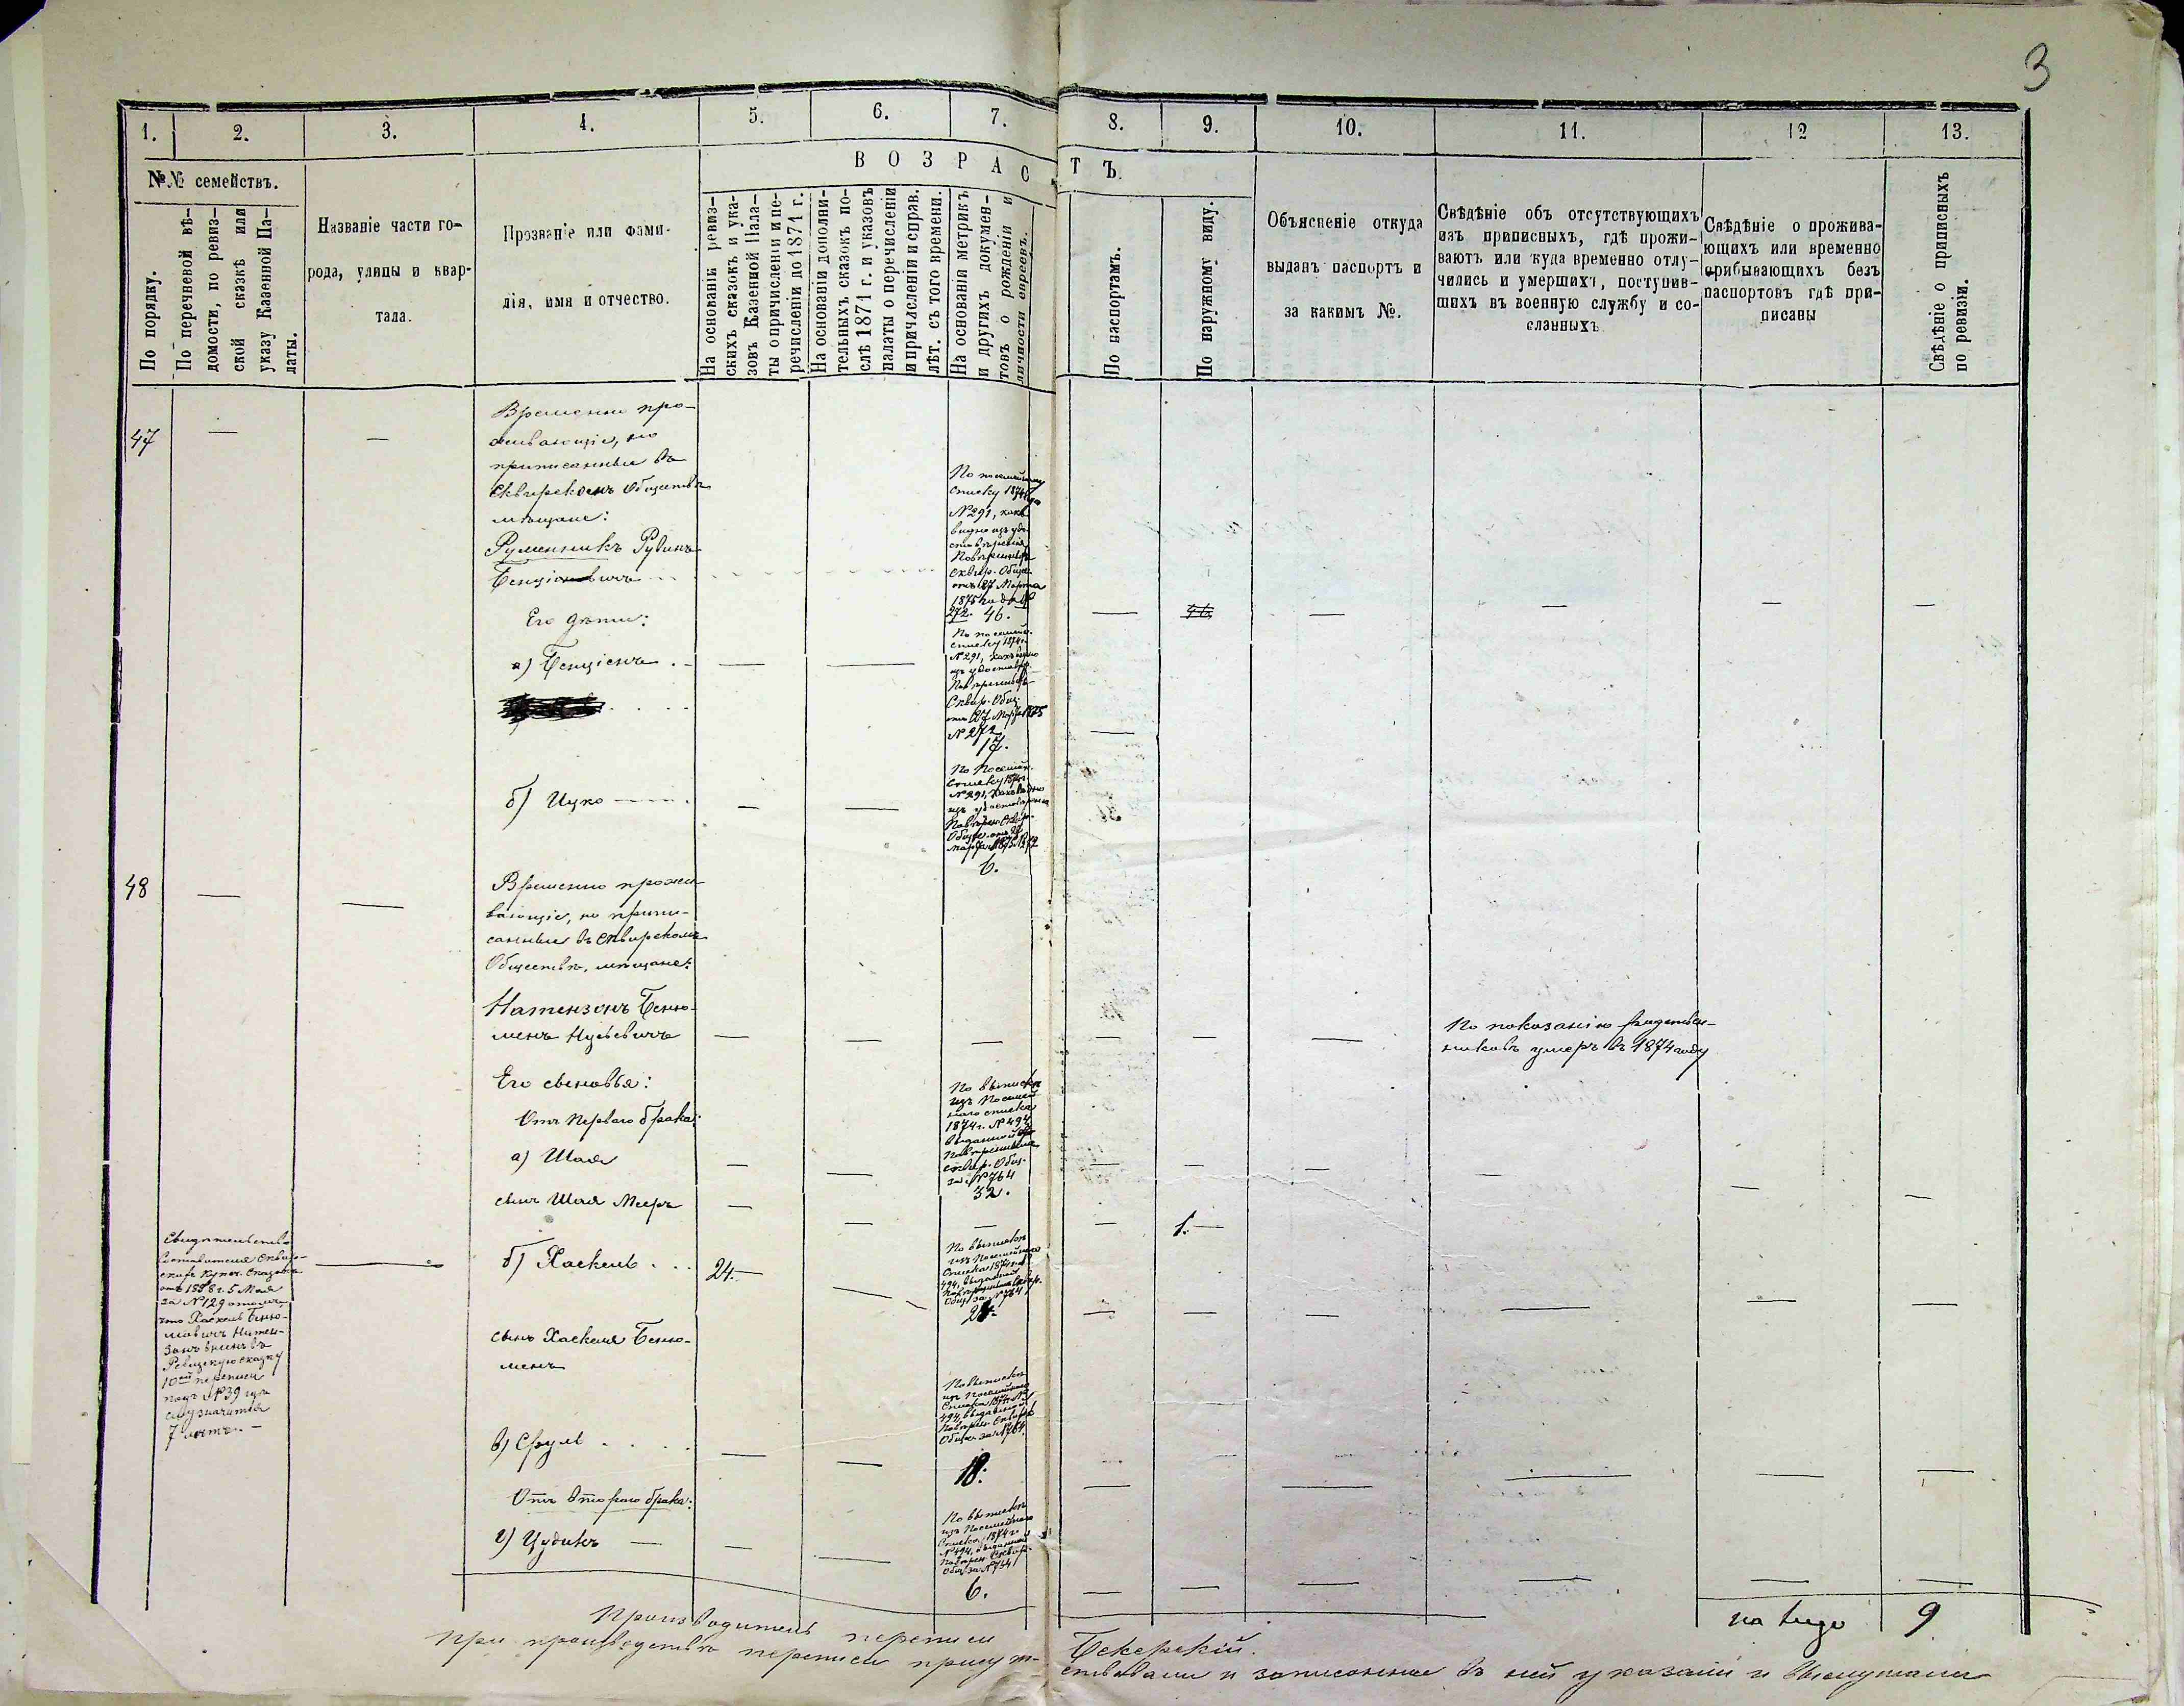 3
1. 2. 3. 4. 5. 6. 7. 8. 9. 10. 11. 12 13.
№№ семействъ.
По порядку.
По перечневой вѣ-
домости, по ревиз-
ской сказкѣ или
указу Казенной Па-
латы.
Названіе части го-
рода, улицы и квар-
тала.
Прозваніе или фами-
лія, имя и отчество.
ВОЗРАСТЪ.
На основаніи ревиз-
скихъ сказокъ и ука-
зовъ Казенной Пала-
ты о причисленіи и пе-
речисленіи до 1871 г.
На основаніи дополни-
тельныхъ сказокъ по-
слѣ 1871 г. и указовъ
палаты о перечисленіи
и причисленіи и справ.
лѣт. съ того времени.
На основаніи метрикъ
и другихъ докумен-
товъ о рожденіи и
личности евреевъ.
По паспортамъ.
По наружному виду.
Объясненіе откуда
выданъ паспортъ и
за какимъ №.
Свѣдѣніе объ отсутствующихъ
изъ приписныхъ, гдѣ прожи-
ваютъ или куда временно отлу-
чились и умершихъ, поступив-
шихъ въ военную службу и со-
сланныхъ
Свѣдѣніе о прожива-
ющихъ или временно
прибывающихъ безъ
паспортовъ гдѣ при-
писаны
Свѣдѣніе о приписныхъ
по ревизіи.
47 — —
Временно про-
живающіе, но
приписанные въ
Сквирскомъ Обществѣ
мѣщане:
Руменникъ Рувинъ
Бенціоновичъ
По посемейному
списку 1874 года
№ 291, какъ
видно изъ удо-
стовѣренія
Повѣренныхъ
Сквир. Общ.
отъ 27 Марта
1875 года №
272. 46.
— 46 — — — —
Его дѣти:
а) Бенціонъ — —
По посемейн.
списку 1874 г.
№ 291, какъ видно
изъ удостовѣр.
Повѣренныхъ
Сквир. Общ.
отъ 27 Марта 1875
№ 272
17.
—
б) Ицко — —
По Посемейн.
списку 1874 г.
№ 291, какъ видно
изъ удостовѣренія
Повѣрен. Сквир.
Общ. отъ 27
марта 1875 № 272
6.
48 — —
Временно прожи-
вающіе, но припи-
санные въ Сквирскомъ
Обществѣ, мѣщане:
Натензонъ Беню-
менъ Нусьевичъ — — — — — —
По показанію родствен-
никовъ умеръ въ 1874 году
Его сыновья:
Отъ перваго брака:
а) Шая — —
По выпискѣ
изъ Посемей-
наго списка
1874 г. № 494
выданной
Повѣренными
Сквир. Общ.
за № 764
32.
— — — — — —
сынъ Шая Мееръ — — — — 1. —
Свидѣтельство
Составителя Сквир-
скихъ купч. Сказокъ
отъ 1858 г. 5 Мая
за № 129
что Хаскель Беню-
мовичъ Натен-
зонъ внесенъ въ
Ревизскую сказку
10ой переписи
подъ № 39 гдѣ
ему значится
7 лѣтъ. —
—
б) Хаскель . . . 24. — —
По выпискѣ
изъ Посемейнаго
Списка 1874 г. №
494, выданной
Повѣренными Сквир.
Общ. за № 764
24.
— — — — — —
сынъ Хаскеля Беню-
менъ
в) Сруль . . . . — —
По выпискѣ
изъ посемейнаго
Списка 1874 г. №
494, выданной
Повѣрен. Сквир.
Общ. за № 764.
18.
— — — —
Отъ втораго брака:
г) Цудикъ — — —
По выпискѣ
изъ Посемейнаго
Списка 1874 г.
№ 494, выданной
Повѣрен. Сквир.
Общ. за № 764
6.
— — — — — —
на лицо 9
Производитель переписи Бекерскій.
При производствѣ переписи присут-ствовали и записанные въ ней указаніи и выслушали